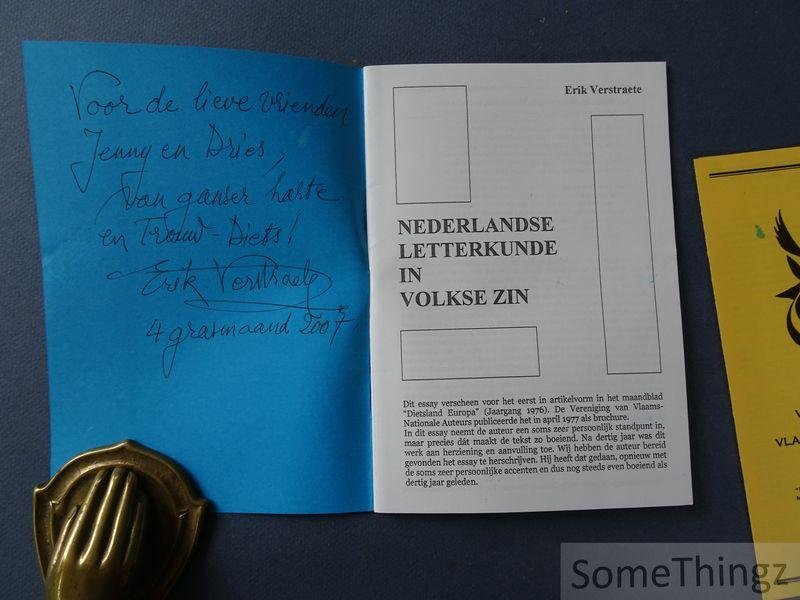 Voor de lieve vrienden
Jenny en Dries,
van ganser harte
en Trouw-Diets!
Erik Verstraete
4 grasmaand 2007.
Erik Verstraete
NEDERLANDSE
LETTERKUNDE
IN
VOLKSE ZIN
Dit essay verscheen voor het eerst in artikelvorm in het maandblad
"Dietsland Europa" (Jaargang 1976). De Vereniging van Vlaams-
Nationale Auteurs publiceerde het in april 1977 als brochure.
In dit essay neemt de auteur een soms zeer persoonlijk standpunt in,
maar precies dát maakt de tekst zo boeiend. Na dertig jaar was dit
werk aan herziening en aanvulling toe. Wij hebben de auteur bereid
gevonden het essay te herschrijven. Hij heeft dat gedaan, opnieuw met
de soms zeer persoonlijke accenten en dus nog steeds even boeiend als
dertig jaar geleden.
V
VLAA
SomeThingz